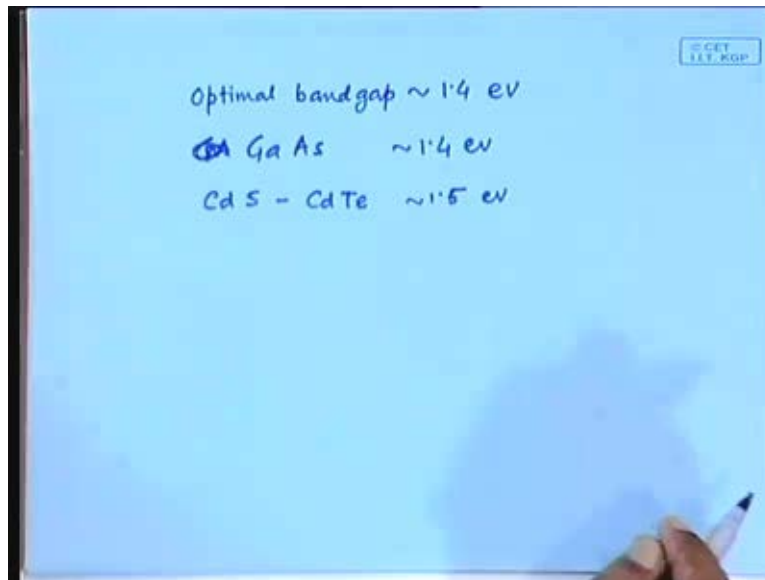 © CET
I.I.T. KGP
Optimal bandgap ~ 1.4 ev
GaAs ~ 1.4 ev
CdS - CdTe ~ 1.5 ev